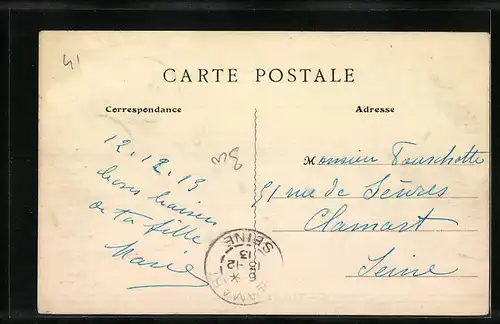 41
CARTE POSTALE
Correspondance
Adresse
12.12.13
bons baisers
de ta fille
Marie
Monsieur Touschotte
51 rue de Sèvres
Clamart
Seine
CLAMART
6
13-12
13
SEINE